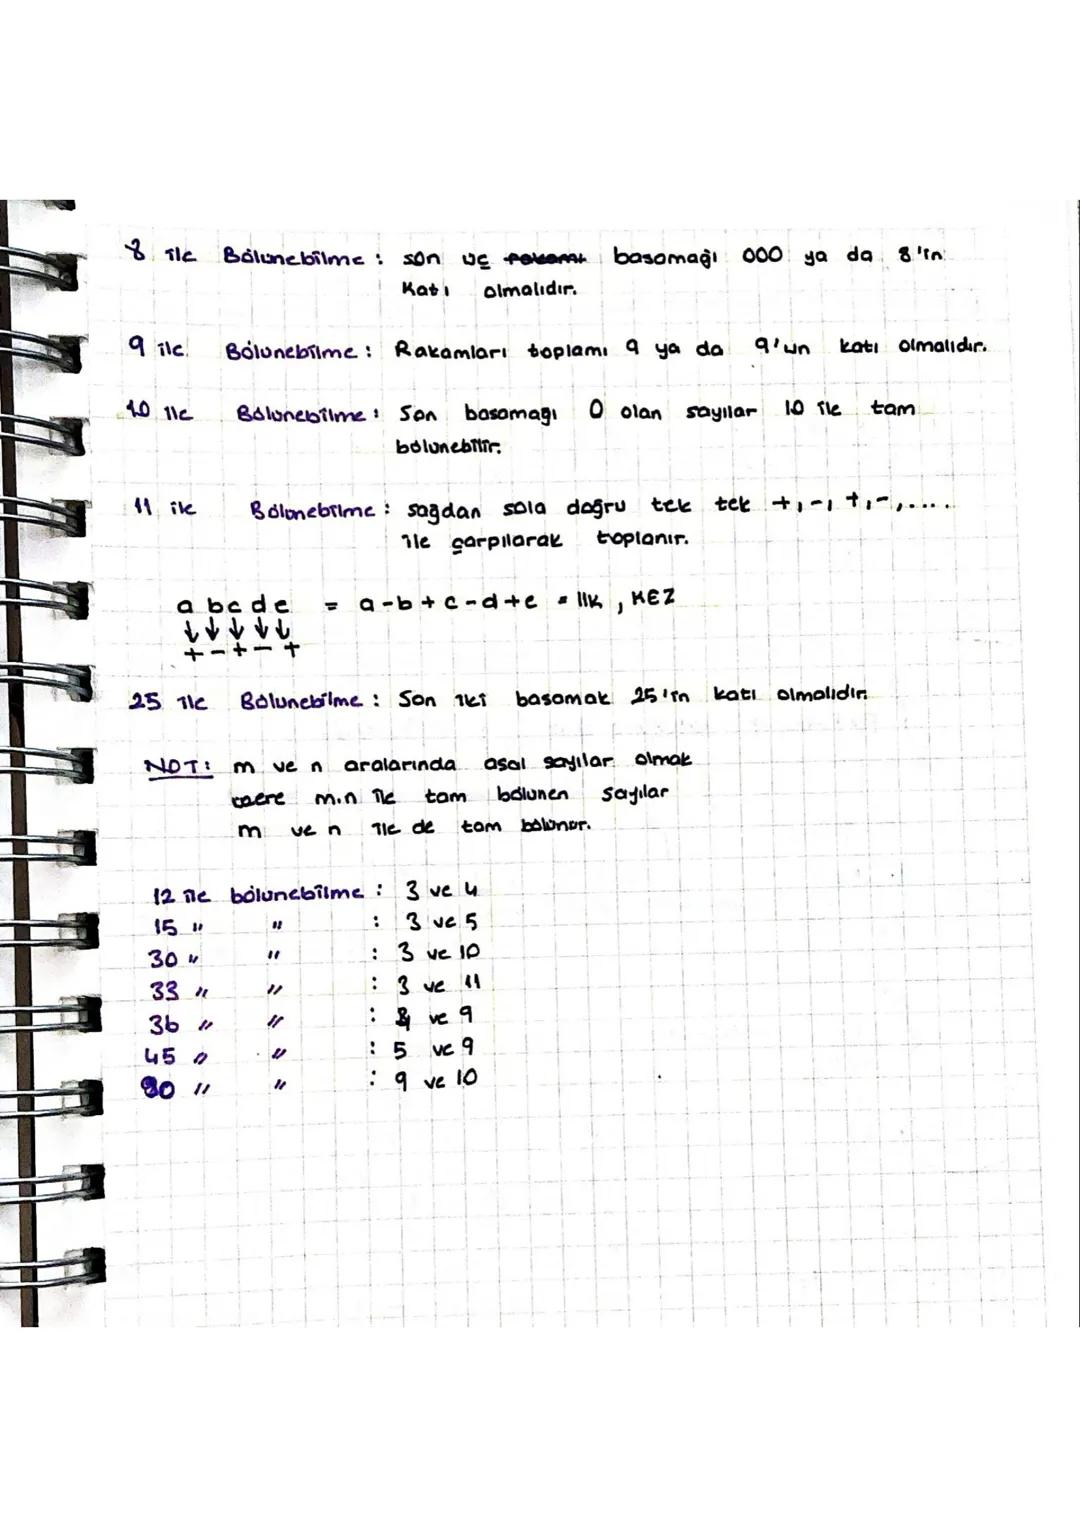 8 ile Bölünebilme : son üç basamağı 000 ya da 8'in
Katı olmalıdır.
9 ile Bölünebilme : Rakamları toplamı 9 ya da 9'un katı olmalıdır.
10 ile Bölünebilme : Son basamağı 0 olan sayılar 10 ile tam
bölünebilir.
11 ile Bölünebilme : sağdan sola doğru tek tek +,-,+,-,.....
ile çarpılarak toplanır.
a b c d e = a-b+c-d+e = 11k , KEZ
↓↓↓↓↓
+-+-+
25 ile Bölünebilme : Son iki basamak 25'in katı olmalıdır.
NOT: m ve n aralarında asal sayılar olmak
üzere m.n ile tam bölünen sayılar
m ve n ile de tam bölünür.
12 ile bölünebilme : 3 ve 4
15 " " : 3 ve 5
30 " " : 3 ve 10
33 " " : 3 ve 11
36 " " : 4 ve 9
45 " " : 5 ve 9
90 " " : 9 ve 10